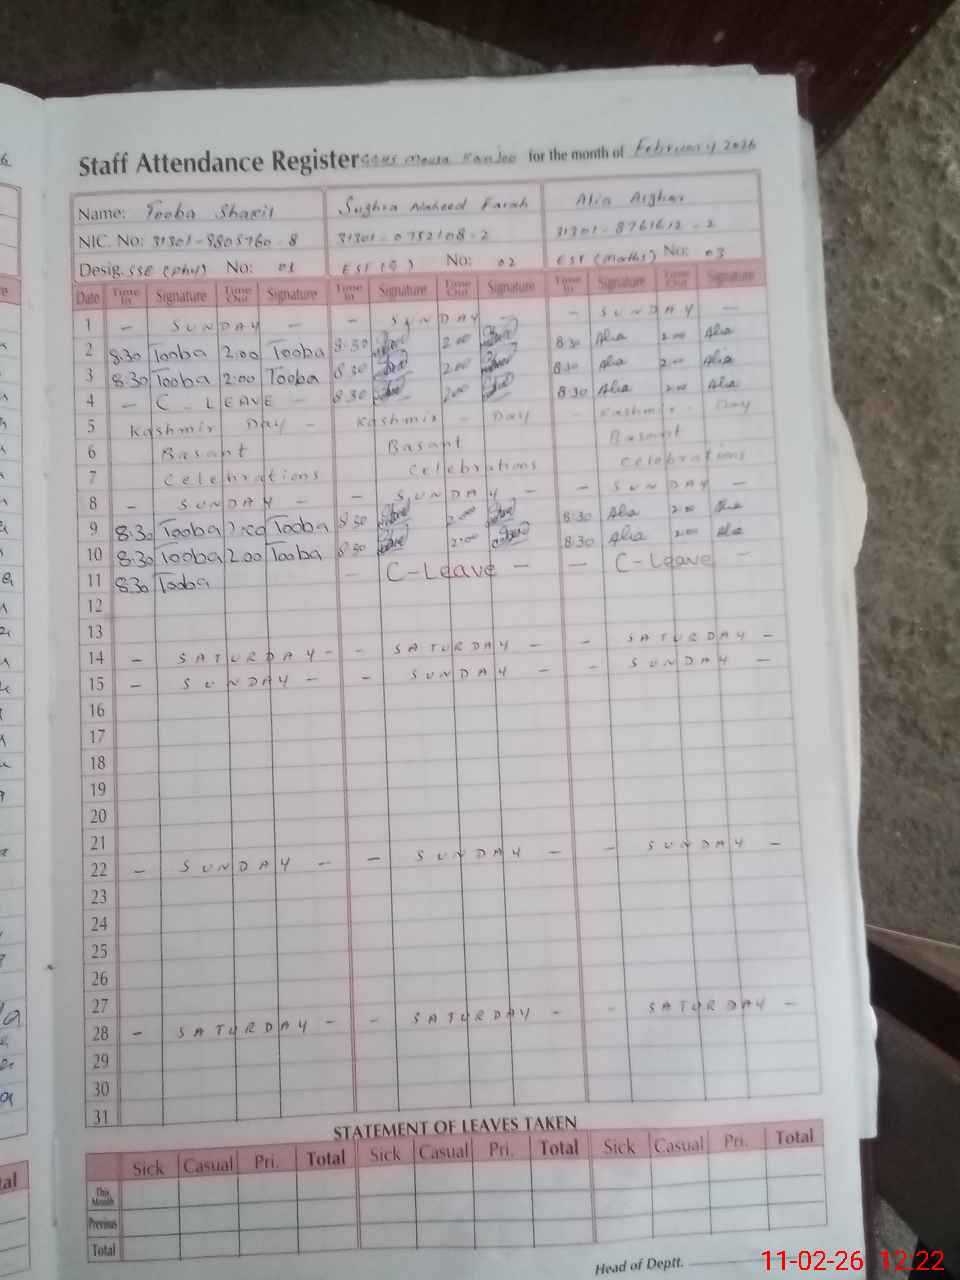 Staff Attendance Register GGHS Mouza Kanjoo for the month of February 2026
Name: Tooba Shakil Sughra Naheed Farah Alia Asghar
NIC. No: 31301-8805760-8 31301-0752108-2 31301-8761612-2
Desig. SSE (Phy) No: 01 EST ( ) No: 02 EST (Maths) No: 03
Date Time In Signature Time Out Signature Time In Signature Time Out Signature Time In Signature Time Out Signature
1 - SUNDAY - - SUNDAY - - SUNDAY -
2 8:30 Tooba 2:00 Tooba 8:30 2:00 8:30 Alia 2:00 Alia
3 8:30 Tooba 2:00 Tooba 8:30 2:00 8:30 Alia 2:00 Alia
4 - C - LEAVE - 8:30 2:00 8:30 Alia 2:00 Alia
5 Kashmir Day - Kashmir - Day - Kashmir - Day
6 Basant Basant Basant
7 Celebrations Celebrations Celebrations
8 - SUNDAY - - SUNDAY - - SUNDAY -
9 8:30 Tooba 2:00 Tooba 8:30 2:00 8:30 Alia 2:00 Alia
10 8:30 Tooba 2:00 Tooba 8:30 2:00 8:30 Alia 2:00 Alia
11 8:30 Tooba - C-Leave - - C-Leave -
12
13
14 - SATURDAY - - SATURDAY - - SATURDAY -
15 - SUNDAY - - SUNDAY - - SUNDAY -
16
17
18
19
20
21
22 - SUNDAY - - SUNDAY - - SUNDAY -
23
24
25
26
27
28 - SATURDAY - - SATURDAY - - SATURDAY -
29
30
31
STATEMENT OF LEAVES TAKEN
Sick Casual Pri. Total Sick Casual Pri. Total Sick Casual Pri. Total
This Month
Previous
Total
Head of Deptt.
11-02-26 12:22